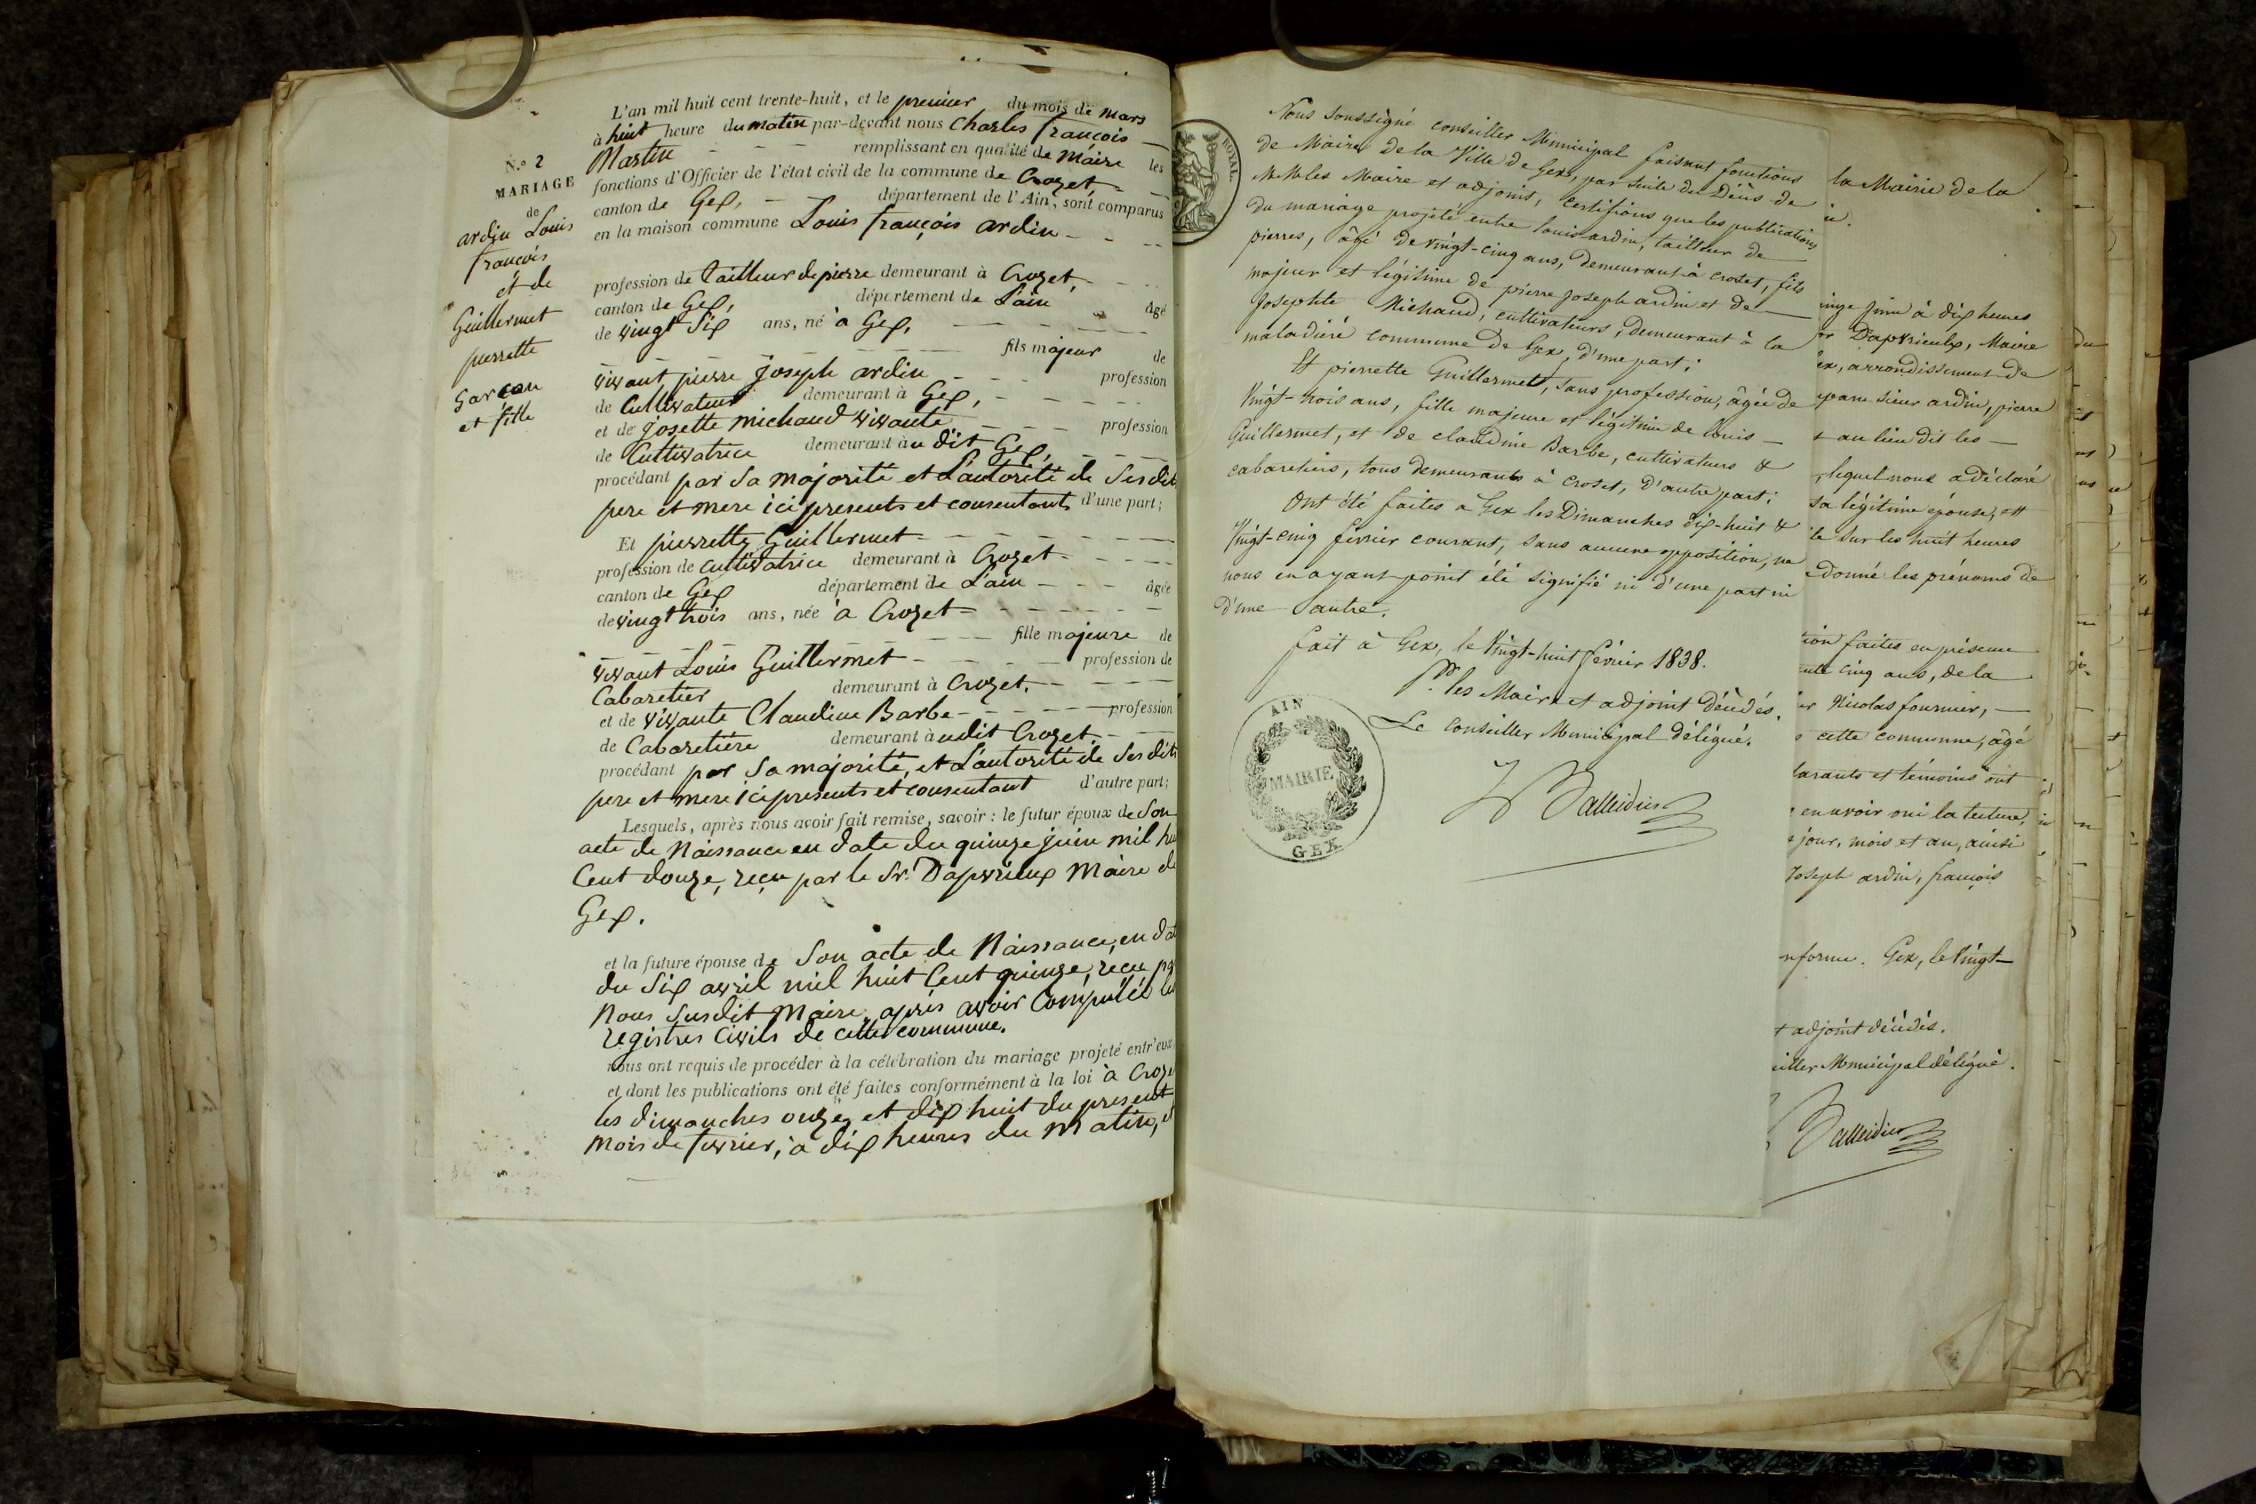 L'an mil huit cent trente-huit, et le premier du mois de mars
à huit heure du matin par-devant nous Charles françois
Martin remplissant en qualité de Maire les
fonctions d'Officier de l'état civil de la commune de Crozet,
canton de Gex, département de l'Ain, sont comparus
en la maison commune Louis françois ardin
profession de tailleur de pierre demeurant à Crozet,
canton de Gex, département de L'ain âgé
de vingt Six ans, né à Gex,
fils majeur de
vivant pierre joseph ardin profession
de Cultivateur demeurant à Gex,
et de josette michaud vivante profession
de Cultivatrice demeurant au dit Gex,
procédant par sa majorité et L'autorité de Ses dit
pere et mere ici presents et consentants d'une part;
Et pierrette Guillermet
profession de cultivatrice demeurant à Crozet
canton de Gex département de L'ain âgée
de vingt trois ans, née à Crozet
fille majeure de
vivant Louis Guillermet profession de
Cabaretier demeurant à Crozet.
et de vivante Claudine Barbe profession
de Cabaretière demeurant audit Crozet.
procédant par Sa majorité, et L'autorité de Ses dits
pere et mere ici presents et consentant d'autre part;
Lesquels, après nous avoir fait remise, savoir: le futur époux de Son
acte de Naissance en date du quinze juin mil hu
Cent douze, reçu par le Sr. Dapvrieux Maire de
Gex.
et la future épouse de Son acte de Naissance, en dat
du Six avril mil huit Cent quinze, reçu pa
Nous Susdit Maire, après avoir Compulsé
registres Civils de cette commune.
nous ont requis de procéder à la célébration du mariage projeté entr'eux
et dont les publications ont été faites conformément à la loi à Croze
les dimanches onze, et dix huit du present
Mois de fevrier, à dix heures du Matin,
N.º 2
MARIAGE
de
ardin Louis
françois
et de
Guillermet
pierrette
Garcon
et fille
ROYAL
Nous soussigné conseiller Municipal faisant fonctions
de Maire de la Ville de Gex, par suite du Décès de
M.M. les Maire et adjoint, certifions que les publications
du mariage projeté entre louis ardin, tailleur de
pierres, âgé de vingt-cinq ans, demeurant à croset, fils
majeur et légitime de pierre joseph ardin et de
Josephte Michaud, cultivateurs, demeurant à la
maladière commune de Gex, d'une part;
Et pierrette Guillermet, sans profession, âgée de
Vingt-trois ans, fille majeure et légitime de louis
Guillermet, et de claudine Barbe, cultivateurs &
cabaretiers, tous demeurants à croset, d'autre part;
Ont été faites à Gex les Dimanches dix-huit &
Vingt-cinq février courant, sans aucune opposition, ne
nous en ayant point été signifié ni d'une part ni
d'une autre.
fait à Gex, le Vingt-huit février 1838.
Pr. les Maire et adjoint décédés.
Le Conseiller Municipal délégué.
AIN
MAIRIE
GEX
la Mairie de la
juin à dix heures
Dapvrieulx, Maire
ex, arrondissement de
sieur ardin, pierre
au lieu dit les
lequel nous a déclaré
sa légitime épouse, est
sur les huit heures
donné les prénoms de
tion faites en présence
cinq ans, de la
Nicolas fournier,
cette commune, âgé
larants et témoins ont
en avoir oui la lecture,
jour, mois et an, ainsi
Joseph ardin, françois
nforme. Gex, le Vingt
t adjoint décédés.
iller Municipal délégué.